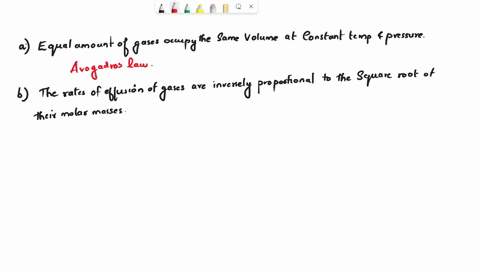 a) Equal amount of gases occupy the Same Volume at Constant temp & pressure.
Avogadros law.
b) The rates of effusion of gases are inversely propotional to the Square root of
their molar masses.